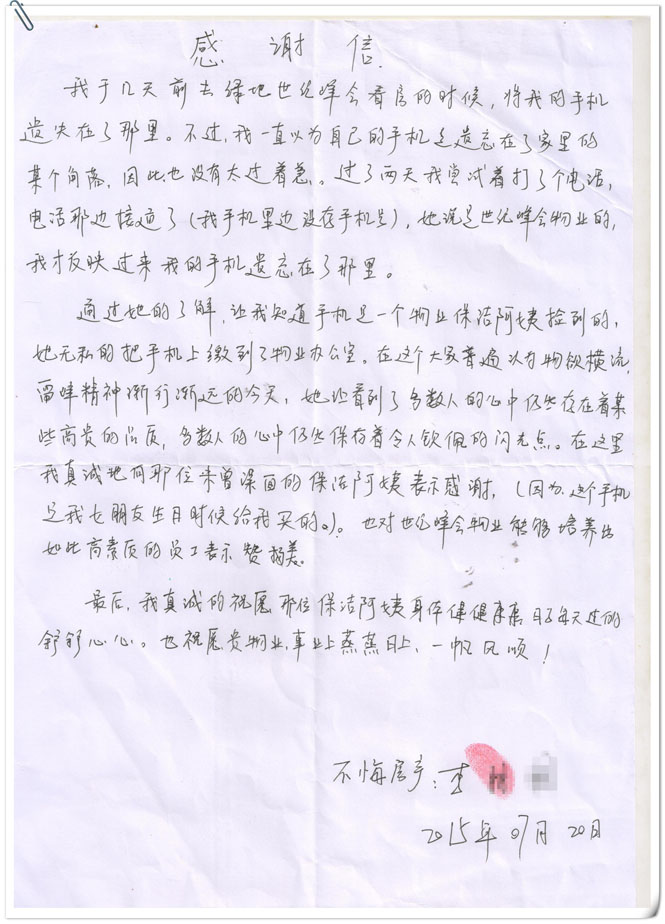 感谢信
我于几天前去绿地世纪峰会看房的时候，将我的手机
遗失在了那里。不过，我一直以为自己的手机是遗忘在了家里的
某个角落，因此也没有太过着急。过了两天我尝试着打了个电话，
电话那边接通了（我手机里边没存手机号），她说是世纪峰会物业的，
我才反映过来我的手机遗忘在了那里。
通过她的了解，让我知道手机是一个物业保洁阿姨捡到的，
她无私的把手机上缴到了物业办公室。在这个大家普遍认为物欲横流，
雷峰精神渐行渐远的今天，她让看到了多数人的心中仍然存在着某
些高贵的品质，多数人的心中仍然保存着令人钦佩的闪光点。在这里
我真诚地向那位未曾谋面的保洁阿姨表示感谢，（因为，这个手机
是我女朋友生日时候给我买的。）。也对世纪峰会物业能够培养出
如此高素质的员工表示赞扬美。
最后，我真诚的祝愿那位保洁阿姨身体健健康康 日子每天过的
舒舒心心。也祝愿贵物业，事业上蒸蒸日上，一帆风顺！
不悔房产：李
2015年07月20日